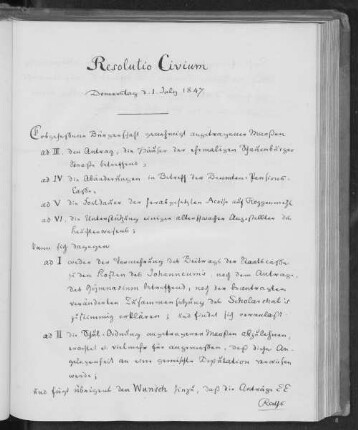 Resolutio Civium
Donnerstag d. 1. July 1847.
Erbgesessene Bürgerschaft genehmigt angetragener Maaßen
ad III. den Antrag, die Häuser der ehemaligen Schauenburger
Straße betreffend;
ad IV die Abänderungen in Betreff der Beamten-Pensions-
Casse;
ad V die Fortdauer der herabgesetzten Accise auf Roggenmehl
ad VI. die Unterstützung einiger altersschwacher Angestellten
kann sich dagegen
ad I weder der Vermehrung des Beitrags der Staatscasse
zu den Kosten des Johanneums, noch dem Antrage
das Gymnasium betreffend, noch der beantragten
veränderten Zusammensetzung des Scholarchats
zustimmig erklären; und findet sich veranlaßt
ad II die Ordnung angetragener Maaßen abzulehnen,
erachtet es vielmehr für angemessen, daß diese An-
gelegenheit an eine gemischte Deputation verwiesen
werde;
und fügt übrigens den Wunsch hinzu, daß die Anträge EE
Raths